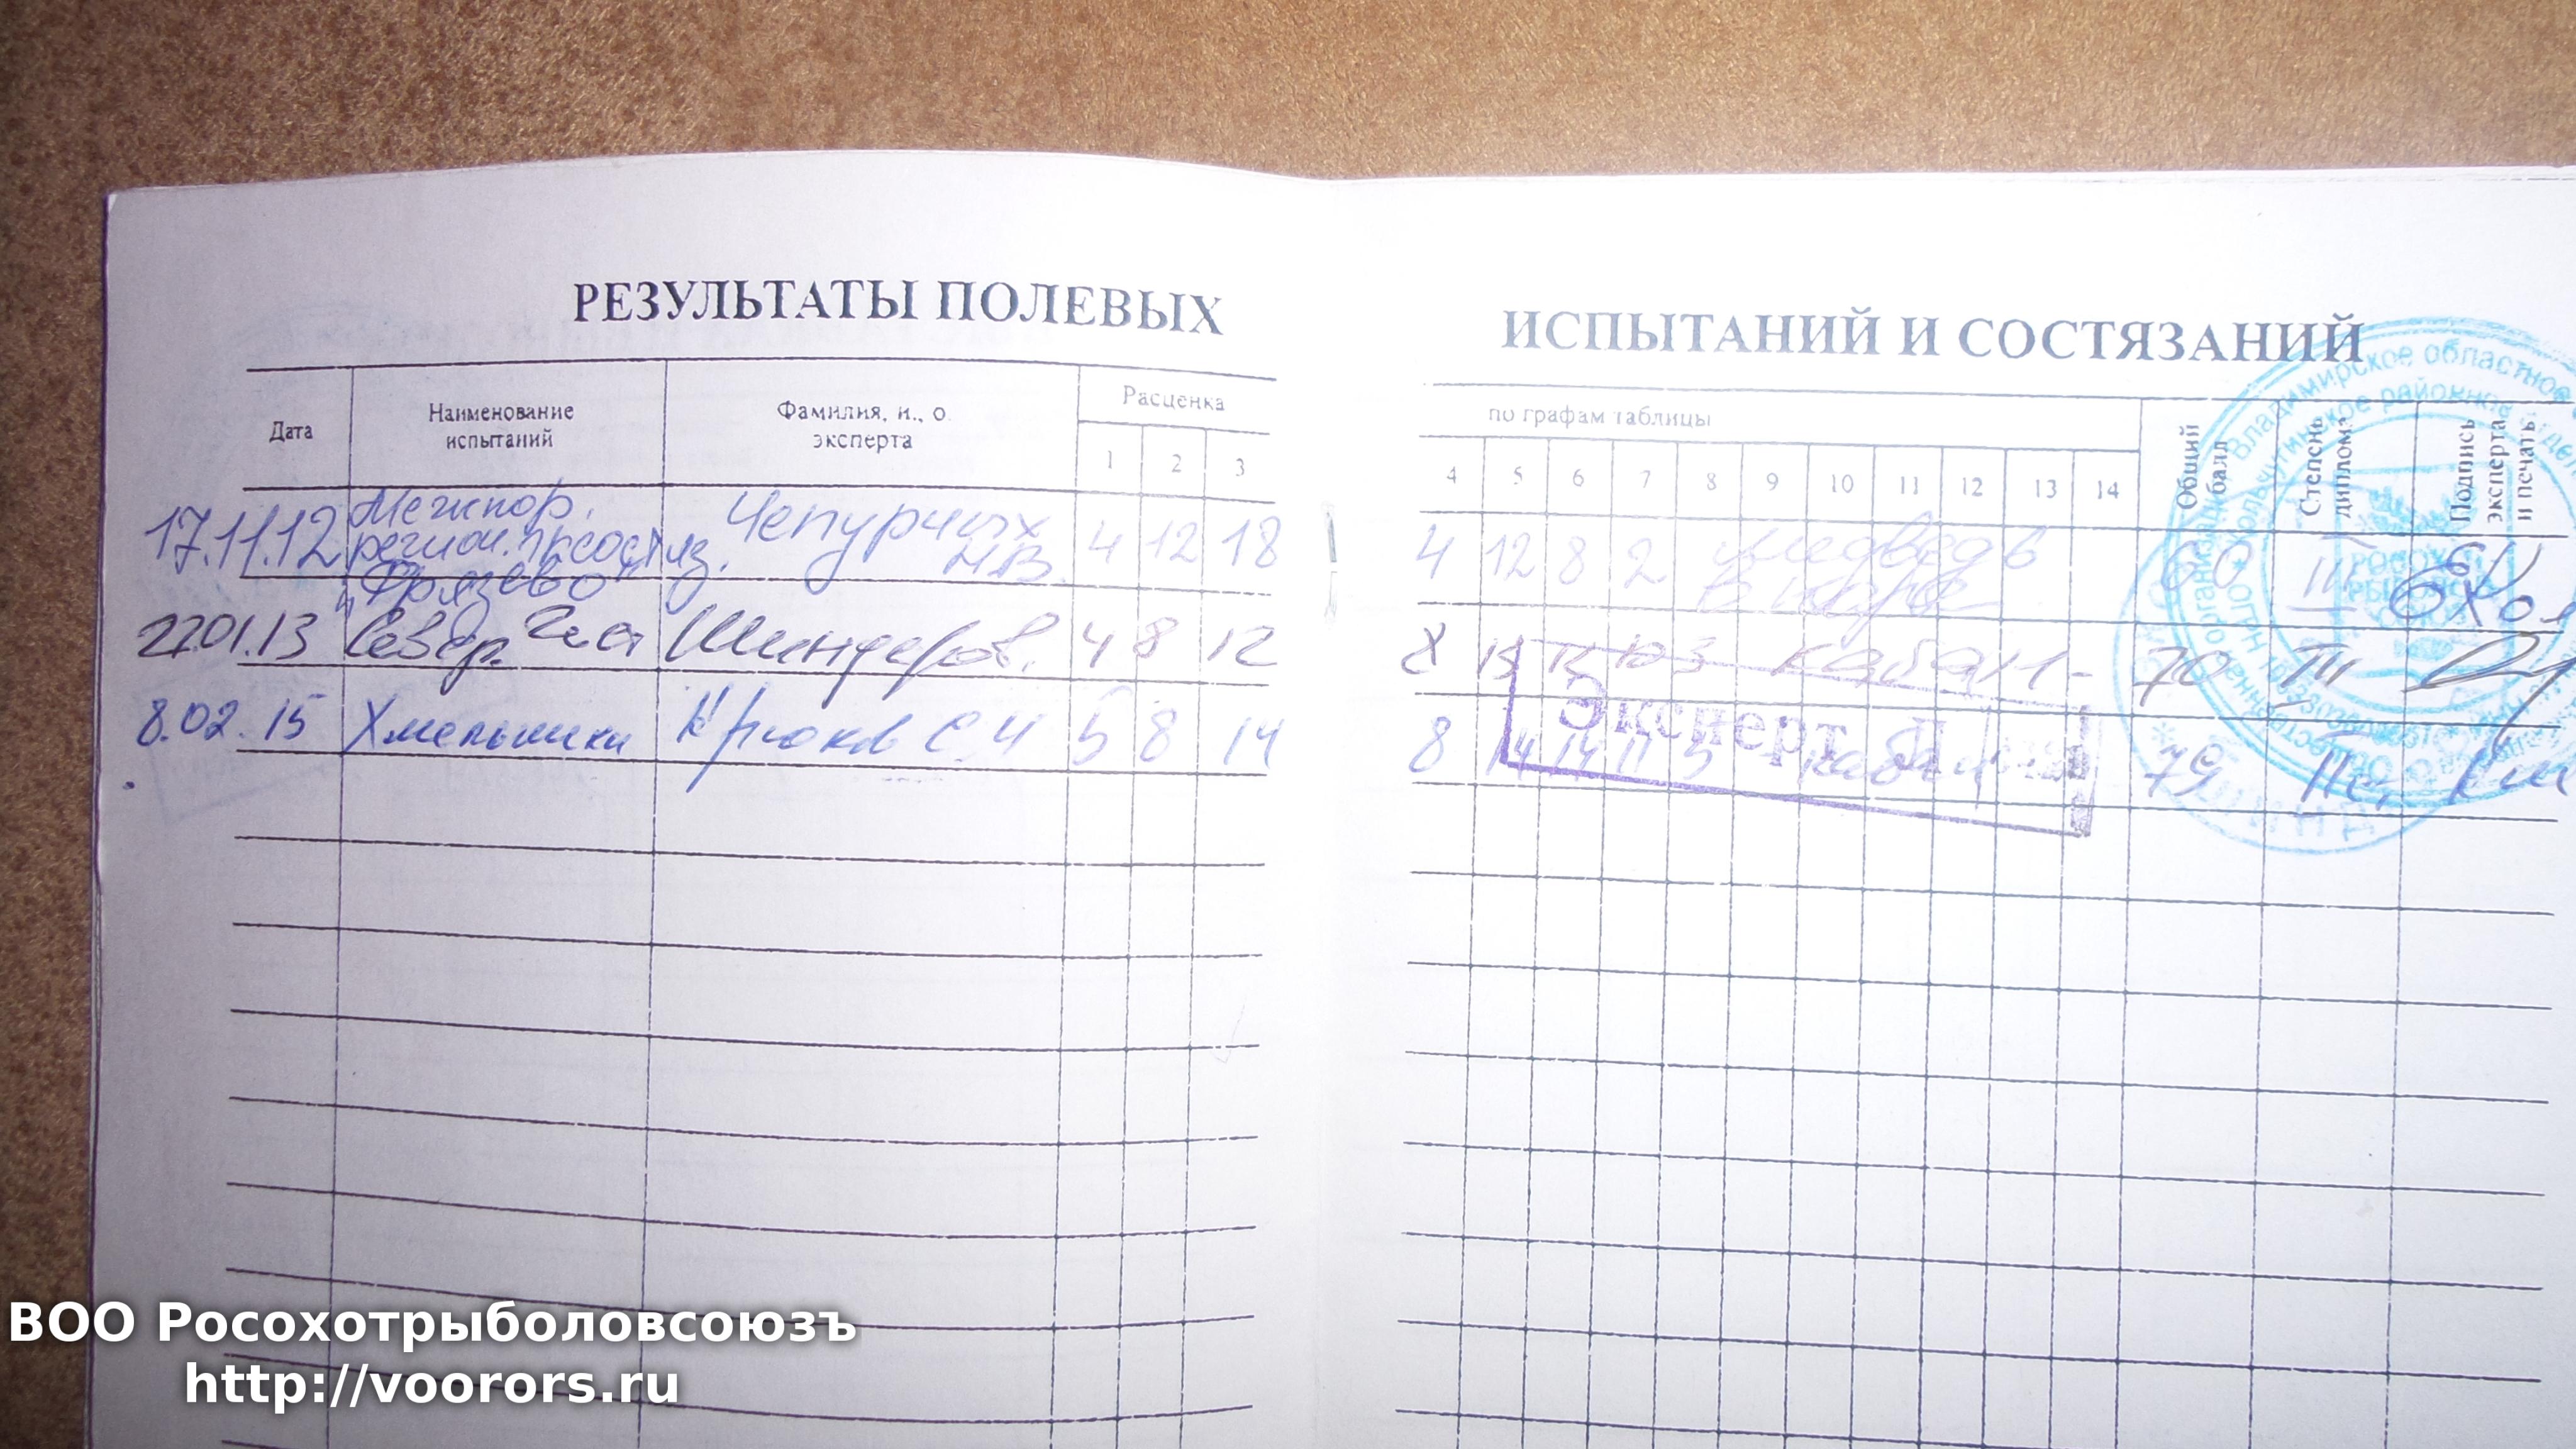 РЕЗУЛЬТАТЫ ПОЛЕВЫХ ИСПЫТАНИЙ И СОСТЯЗАНИЙ
Дата
Наименование
испытаний
Фамилия, и., о.
эксперта
Расценка по графам таблицы
1 2 3 4 5 6 7 8 9 10 11 12 13 14
Общий
балл
Степень
диплома
Подпись
эксперта
и печать
17.11.12
Межпор.
регион.
"Фрязево"
Чепурных
Н.В.
4 12 18 4 12 8 2 медведь
в паре
60 III
22.01.13 Север. Шиндеров. 4 8 12 8 15 кабан - 70 III
8.02.15 Хмельники Крюков С 5 8 14 8 14 14 11 5 79 II
Эксперт
Владимирское областное
ВОО Росохотрыболовсоюзъ
http://voorors.ru